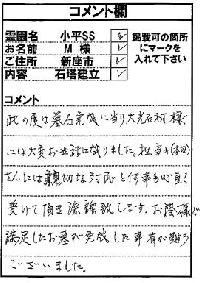 コメント欄
霊園名 小平SS
お名前 M 様
ご住所 新座市
内容 石塔建立
掲載可の箇所
にマークを
入れて下さい
コメント
此の度は墓石完成に当り大光石材様
には大変お世話になりました。担当の
さんには親切な対応と仕事を心良く
受けて頂き感謝致します。お蔭様で
満足したお墓が完成した事有り難う
ございました。